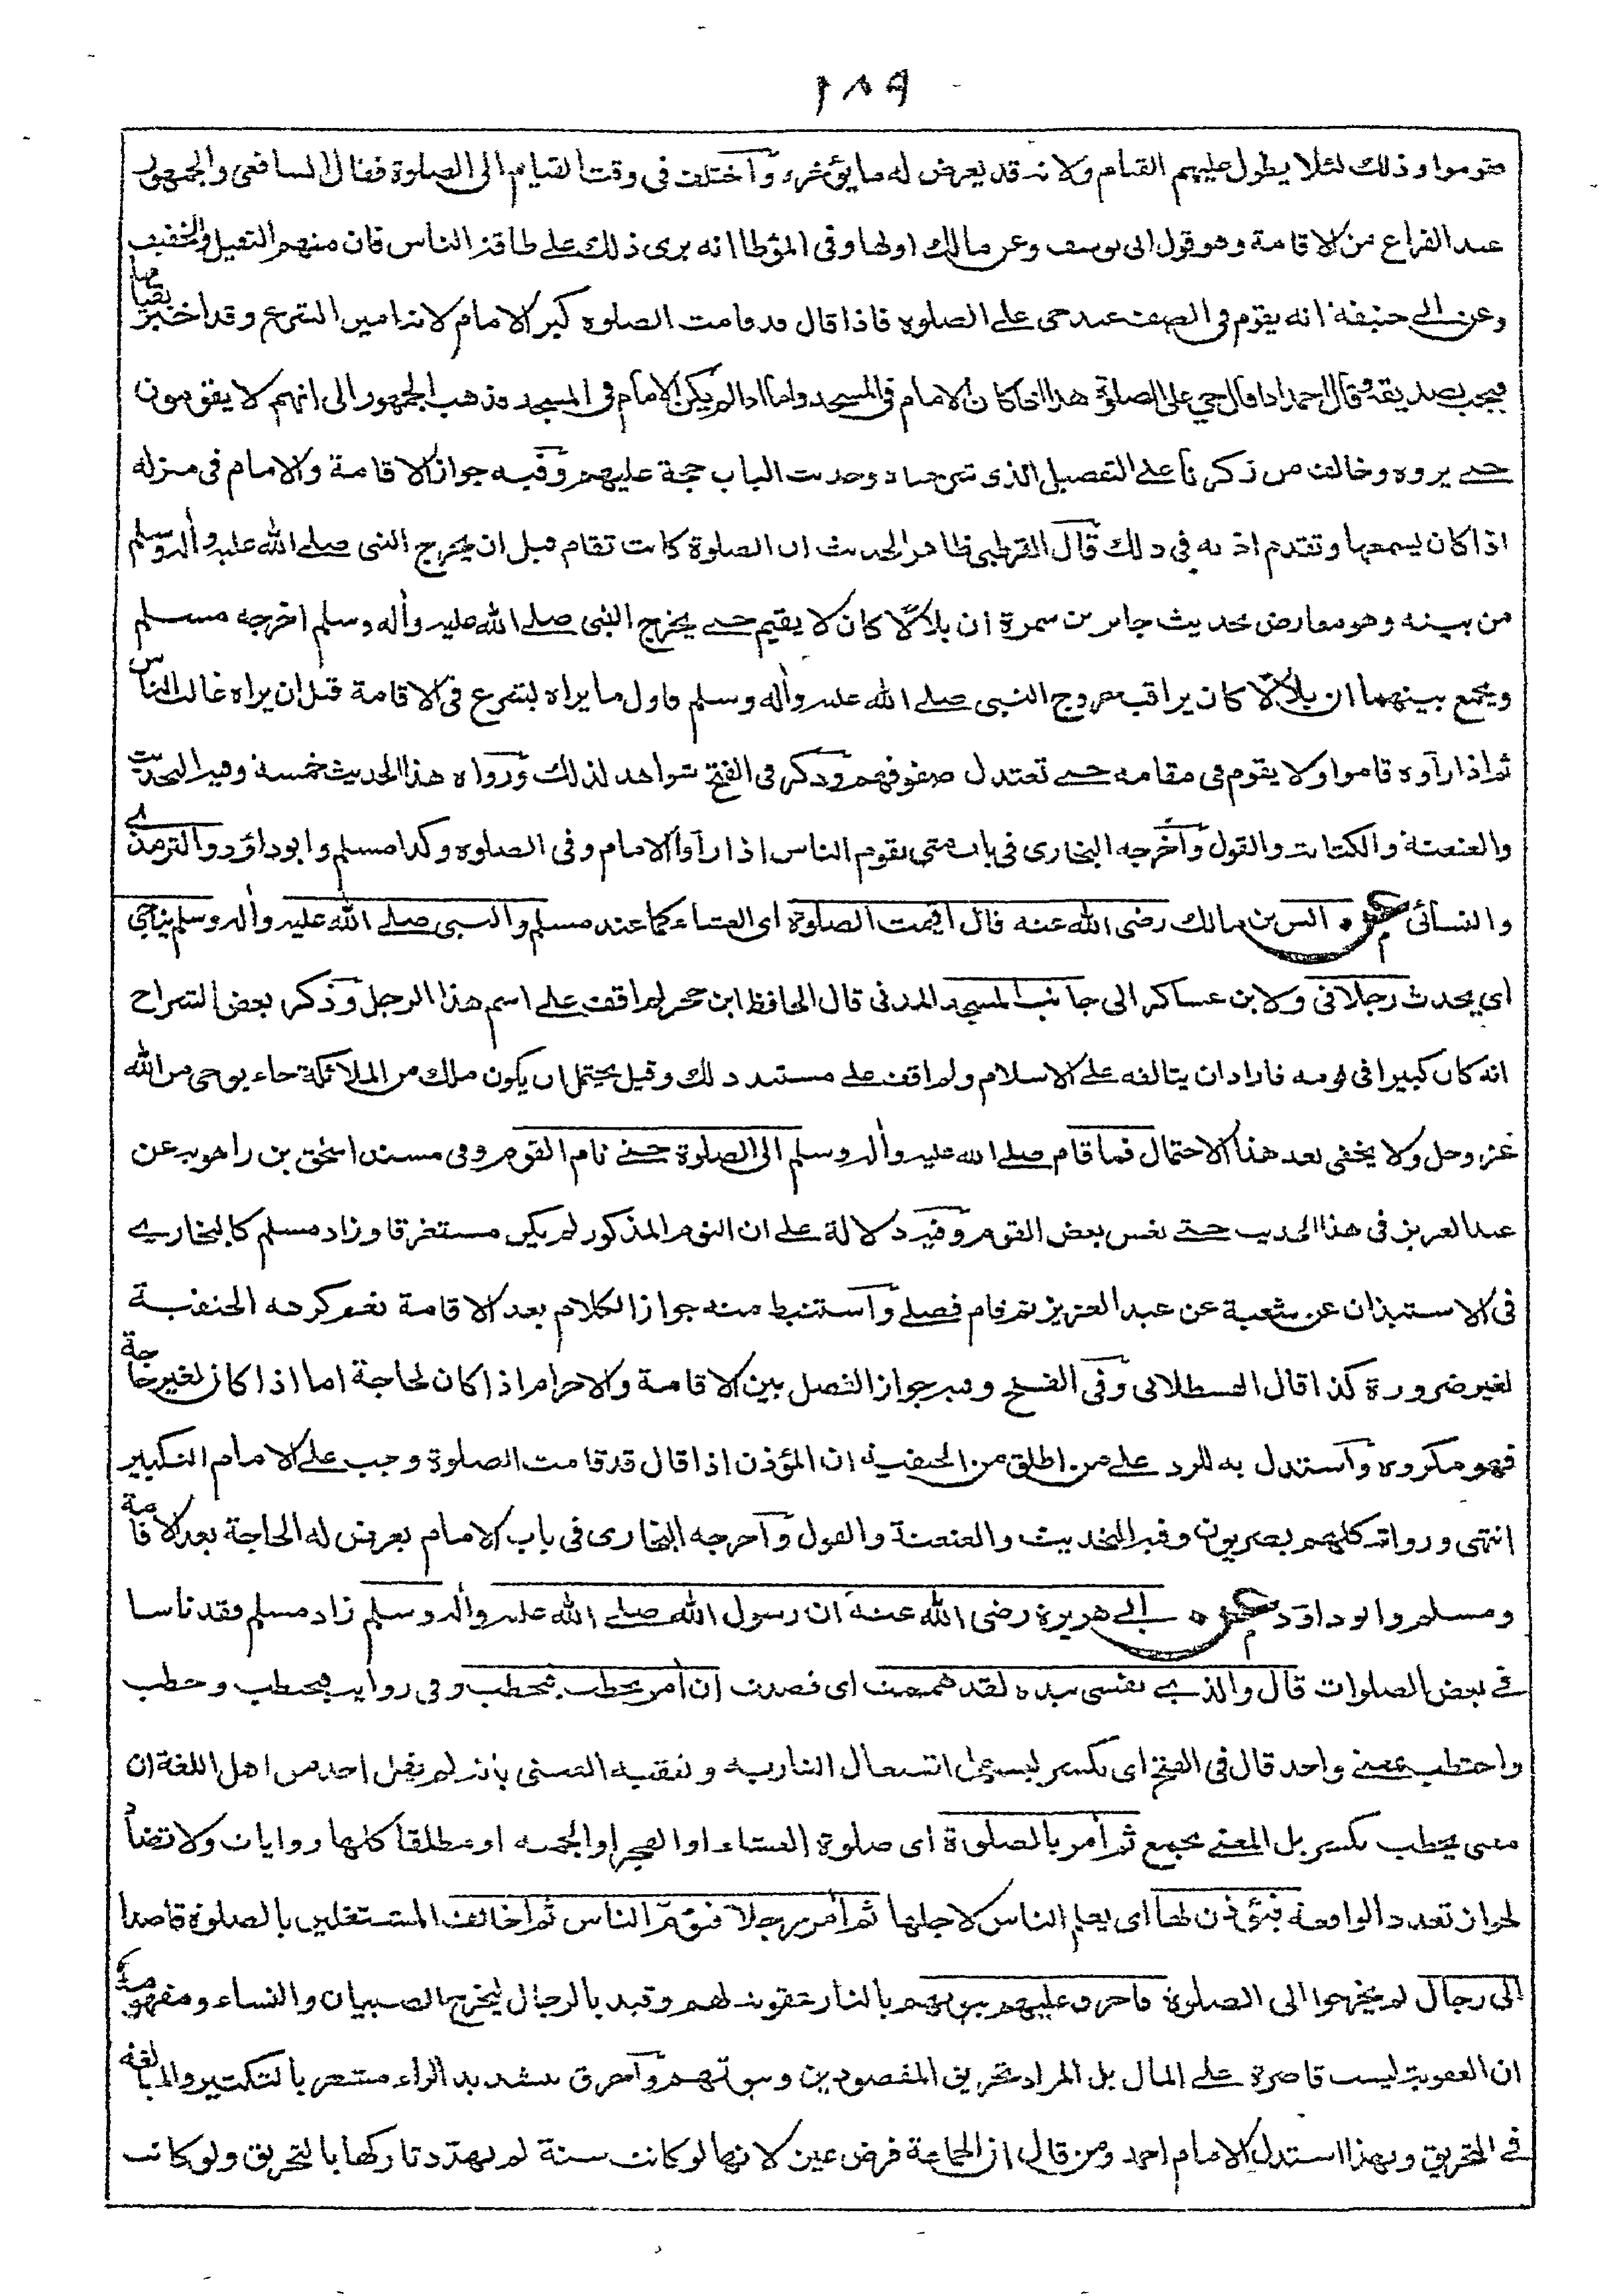 ١٨٩
تقوموا وذلك لئلا يطول عليهم القيام ولانه قد يعرض له ما يؤخره وآختلف فى وقت القيام الى الصلوة فقال الشافعى والجمهور
عند الفراغ من الاقامة وهو قول ابى يوسف وعن مالك اولها وفى المؤطا انه يرى ذلك على طاقة الناس فان منهم الثقيل والخفيف
وعن ابى حنيفة انه يقوم فى الصف عند حى على الصلوة فاذا قال قد قامت الصلوة كبر الامام لانه امين الشرع وقد اخبر بقيامها
فيجب تصديقه وقال احمد اذا قال حي على الصلوة هذا اذا كان الامام فى المسجد واما اذا لم يكن الامام فى المسجد فذهب الجمهور الى انهم لا يقومون
حتے يروه وخالف من ذكرنا على التفصيل الذى شرحناه وحديث الباب حجة عليهم وفيه جواز الاقامة والامام فى منزله
اذا كان يسمعها وتقدم اذنه فى ذلك قآل القرطبى ظاهر الحديث ان الصلوة كانت تقام قبل ان يخرج النبى صلے الله عليه وأله وسلم
من بيته وهو معارض لحديث جابر بن سمرة ان بلالا كان لا يقيم حتے يخرج النبى صلے الله عليه وأله وسلم اخرجه مسلم
ويجمع بينهما ان بلالا كان يراقب خروج النبى صلے الله عليه وأله وسلم فاول ما يراه يشرع فى الاقامة قبل ان يراه غالب الناس
ثم اذا رآوه قاموا ولا يقوم فى مقامه حتے تعتدل صفوفهم وذكر فى الفتح شواهد لذلك ورواة هذا الحديث خمسة وفيه التحديث
والعنعنة والكتابت والقول وآخرجه البخارى فى باب متى يقوم الناس اذا رآوا الامام وفى الصلوة وكذا مسلم وابو داؤد والترمذے
والنسائى عن انس بن مالك رضى الله عنه قال اقيمت الصلوة اى العشاء كما عند مسلم والنبى صلے الله عليه وأله وسلم يناجى
اى يحدث رجلا فى ولابن عساكر الى جانب المسجد المدنى قال الحافظ ابن حجر لم اقف على اسم هذا الرجل وذكر بعض الشراح
انه كان كبيرا فى قومه فاراد ان يتالفه على الاسلام ولم اقف على مستند ذلك وقيل يحتمل ان يكون ملك من الملائكة جاء بوحى من الله
عز وجل ولا يخفى بعد هذا الاحتمال فما قام صلے الله عليه وأله وسلم الى الصلوة حتے نام القوم وفى مسند اسحٰق بن راهويه عن
عبد العزيز فى هذا الحديث حتے نعس بعض القوم وفيه دلالة على ان النوم المذكور لم يكن مستغرقا وزاد مسلم كالبخارے
فى الاستيذان عن شعبة عن عبد العزيز ثم قام فصلے وآستنبط منه جواز الكلام بعد الاقامة نعم كرهه الحنفية
لغير ضرورة كذا قال القسطلانى وفى الفتح وفيه جواز الفصل بين الاقامة والاحرام اذا كان لحاجة اما اذا كان لغير حاجة
فهو مكروه وآستدل به للرد على من اطلق من الحنفية ان المؤذن اذا قال قد قامت الصلوة وجب على الامام التكبير
انتهى ورواته كلهم بصريون وفيه التحديث والعنعنة والقول وآخرجه البخارى فى باب الامام يعرض له الحاجة بعد الاقامة
ومسلم وابو داؤد عن ابے هريرة رضى الله عنه ان رسول الله صلے الله عليه وأله وسلم زاد مسلم فقد ناسا
فے بعض الصلوات قال والذے نفسى بيده لقد هممت اى قصدت ان أمر بحطب فيحطب وفى رواية فيحتطب وحطب
واحتطب بمعنے واحد قال فى الفتح اى يكسر ليسهل اشتعال النار به وتعقبه العينى بانه لم يقل احد من اهل اللغة ان
معنى يحطب يكسر بل المعنے يجمع ثم أمر بالصلوة اى صلوة العشاء او الفجر او الجمعه او مطلقا كلها روايات ولا تضاد
لجواز تعدد الواقعة فيؤذن لها اى يعلم الناس لاجلها ثم أمر رجلا فيؤمّ الناس ثم اخالف المشتغلين بالصلوة قاصدا
الى رجال لم يخرجوا الى الصلوة فاحرق عليهم بيوتهم بالنار عقوبة لهم وقيد بالرجال ليخرج الصبيان والنساء ومفهومه
ان العقوبة ليست قاصرة على المال بل المراد تحريق المقصودين وبيوتهم وآحرق بتشديد الراء مشعر بالتكثير والمبالغة
فے التحريق وبهذا استدل الامام احمد ومن قال ان الجماعة فرض عين لانها لو كانت سنة لم يهدّد تاركها بالتحريق ولو كانت